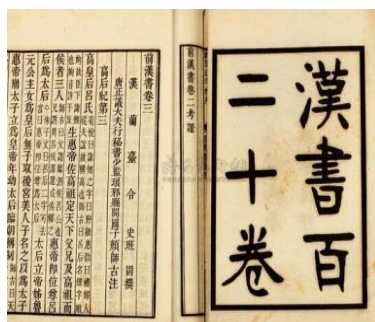 漢書百
二十卷
前漢書卷二考證
前漢書卷三
漢蘭臺令史班固撰
唐正議大夫行秘書少監琅邪縣開國子顏師古注
高后紀第三
高皇后呂氏
生惠帝佐高祖定天下父兄及高祖而
侯者三人 惠帝即位尊呂
后為太后 太后立帝姊魯
元公主女為皇后無子取後宮美人子名之以為太子
惠帝崩太子立為皇帝年幼太后臨朝稱制 師古曰天